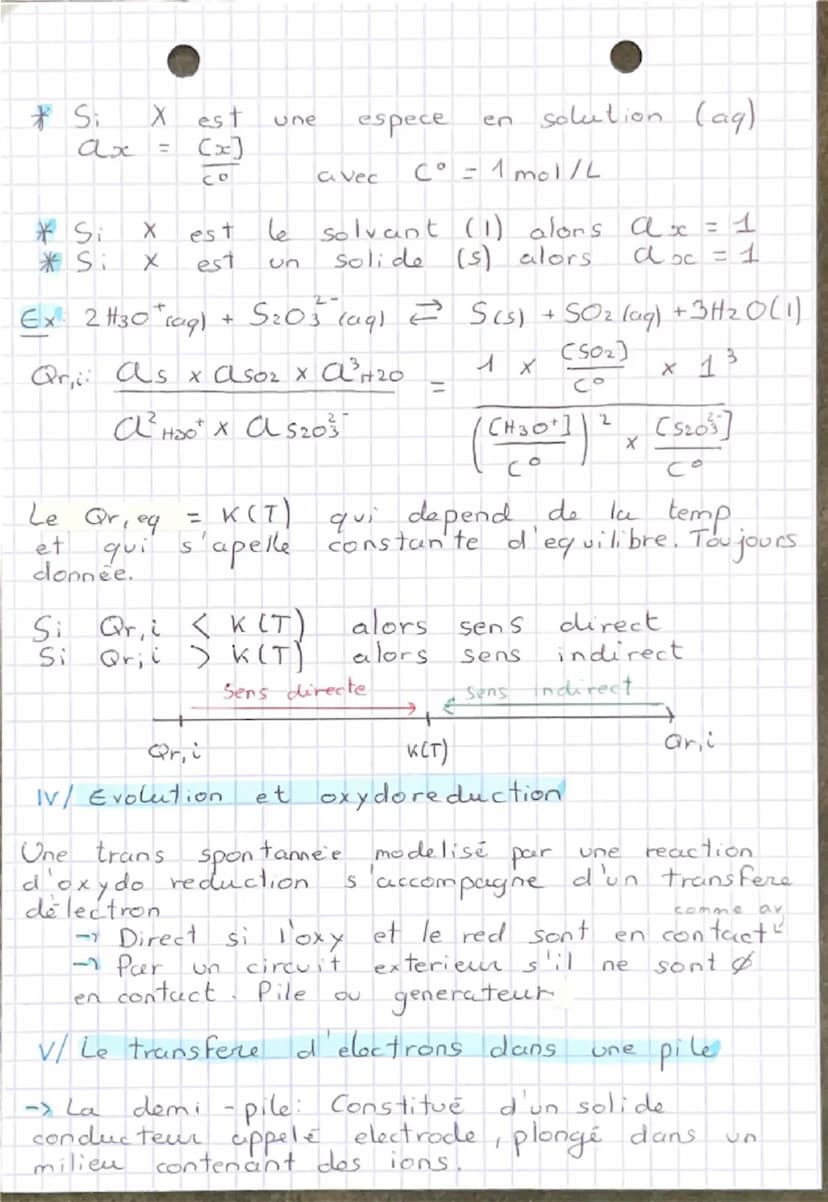 * Si X est une espece en solution (aq)
ax = [x]/C° avec C° = 1 mol/L
* Si X est le solvant (l) alons ax = 1
* Si X est un solide (s) alors ax = 1
Ex: 2H3O⁺(aq) + S2O3²⁻(aq) ⇄ S(s) + SO2(aq) + 3H2O(l)
Qr,i: (as × aSO2 × a³H2O) / (a²H3O⁺ × aS2O3²⁻) = (1 × [SO2]/C° × 1³) / (([H3O⁺]/C°)² × [S2O3²⁻]/C°)
Le Qr,eq = K(T) qui depend de la temp
et qui s'apelle constante d'equilibre. Toujours
donnée.
Si Qr,i < K(T) alors sens direct
Si Qr,i > K(T) alors sens indirect
Sens directe sens indirect
Qr,i K(T) Qr,i
IV/ Evolution et oxydoreduction
Une trans spontannée modelisé par une reaction
d'oxydo reduction s'accompagne d'un transfere
délectron comme av
→ Direct si l'oxy et le red sont en contact
→ Par un circuit exterieur s'il ne sont ∅
en contact. Pile ou generateur
V/ Le transfere d'electrons dans une pile
-> La demi-pile: Constitué d'un solide
conducteur appelé electrode, plongé dans un
milieu contenant des ions.